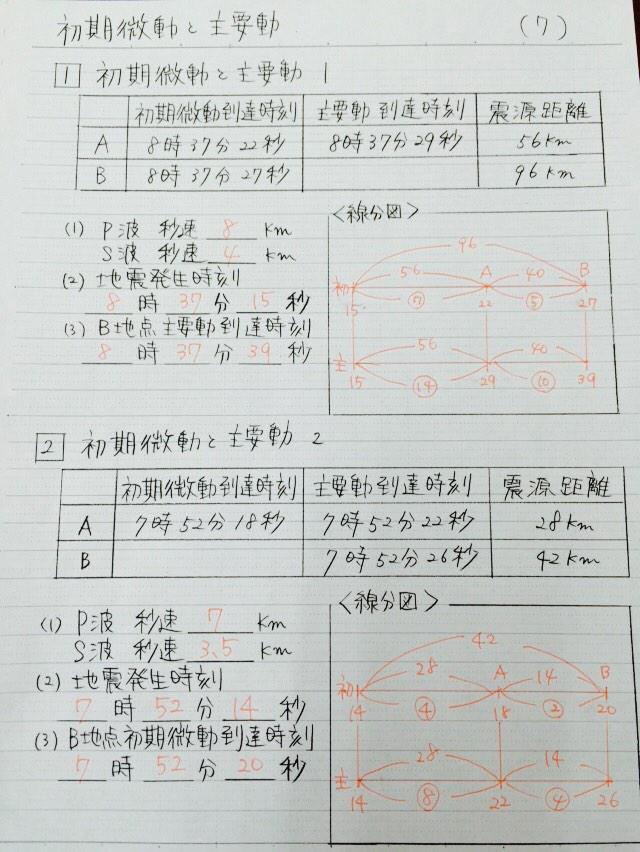 初期微動と主要動 (7)
1 初期微動と主要動 1
初期微動到達時刻 主要動到達時刻 震源距離
A 8時37分22秒 8時37分29秒 56km
B 8時37分27秒 96km
(1) P波 秒速 8 km
S波 秒速 4 km
(2) 地震発生時刻
8 時 37 分 15 秒
(3) B地点主要動到達時刻
8 時 37 分 39 秒
<線分図>
96
56 A 40 B
初
15 ⑦ 22 ⑤ 27
56 40
主
15 ⑭ 29 ⑩ 39
2 初期微動と主要動 2
初期微動到達時刻 主要動到達時刻 震源距離
A 7時52分18秒 7時52分22秒 28km
B 7時52分26秒 42km
(1) P波 秒速 7 km
S波 秒速 3.5 km
(2) 地震発生時刻
7 時 52 分 14 秒
(3) B地点初期微動到達時刻
7 時 52 分 20 秒
<線分図>
42
28 A 14 B
初
14 ④ 18 ② 20
28 14
主
14 ⑧ 22 ④ 26